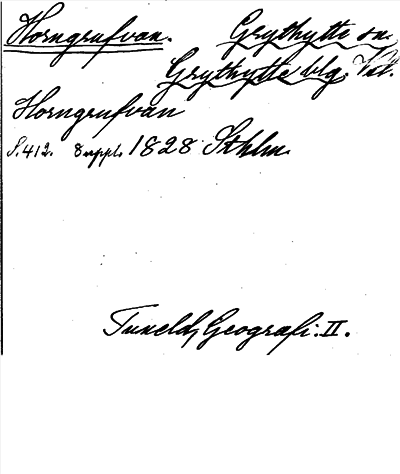 Horngrufvan. Grythytte sn.
Grythytte blg. Vstl.
Horngrufvan
S. 412. 8 uppl. 1828 Sthlm
Tuneld, Geografi. II.